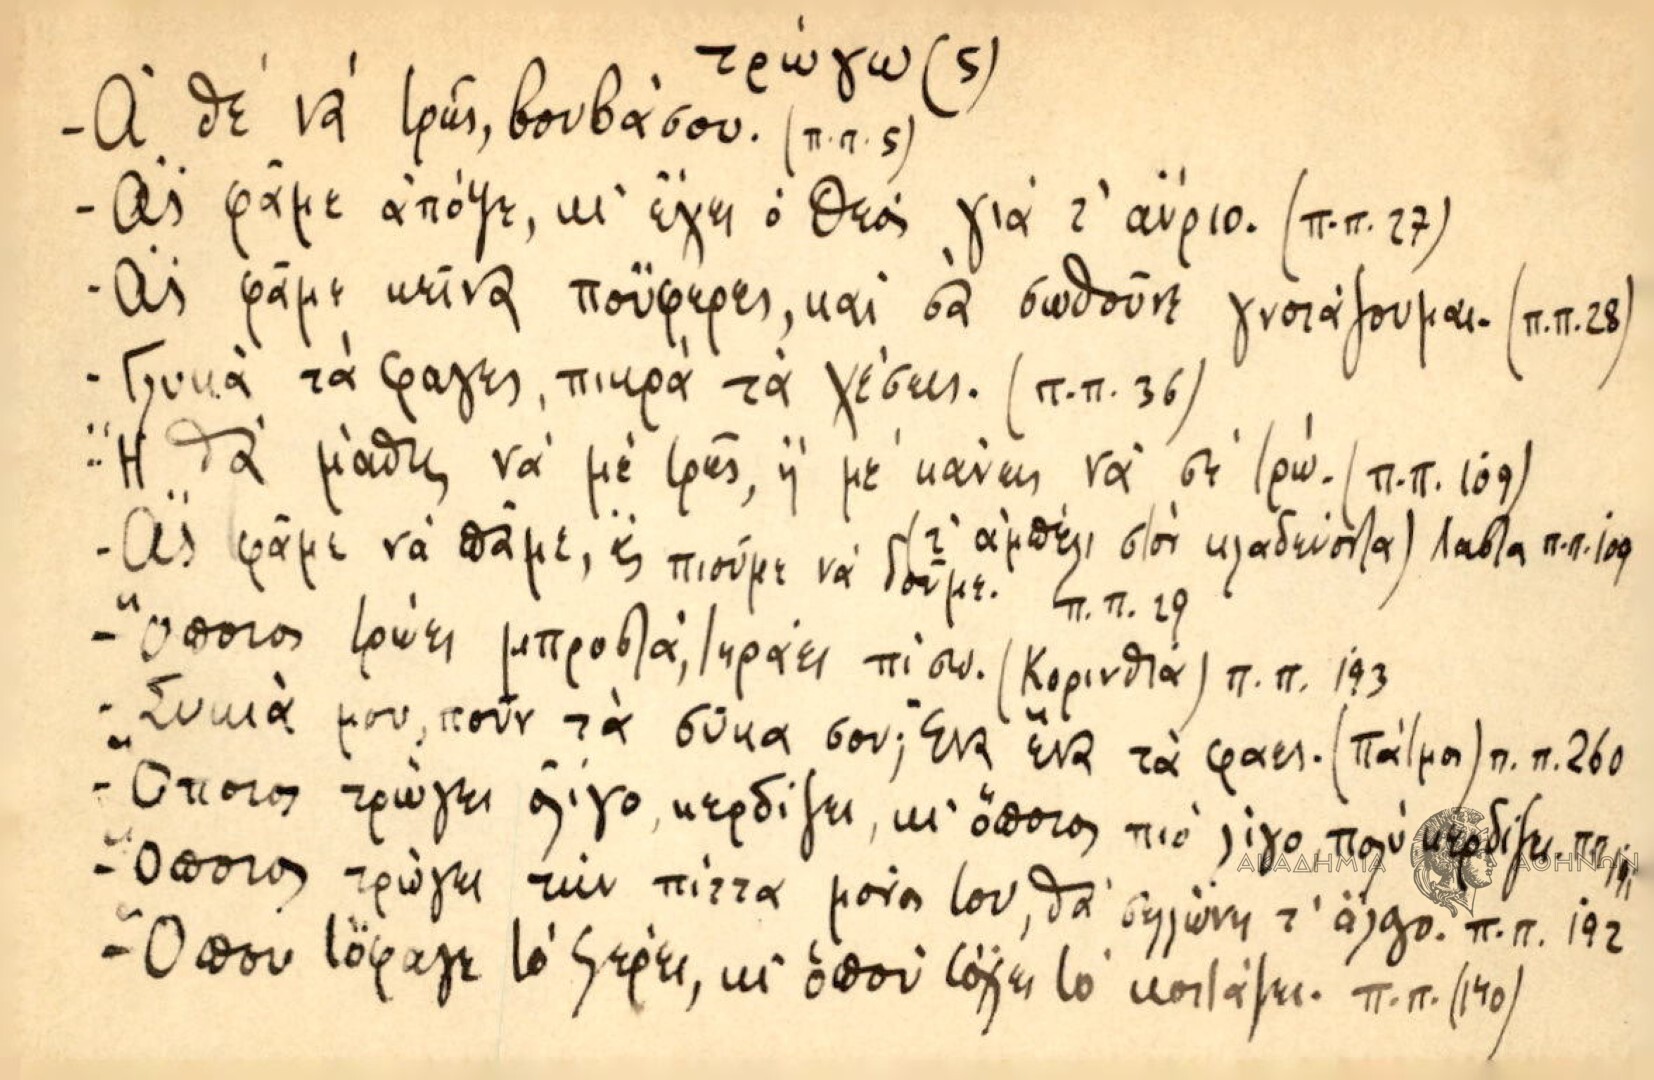 τρώγω (5)
- Ἀ θέ νά τρῇς, βουβάσου. (π.π. 5)
- Ἂς φᾶμε ἀπόψε, κι' ἔχει ὁ Θεός γιά τ' αὔριο. (π.π. 27)
- Ἂς φᾶμε κεῖνα ποὔφερες, καί σὰ σωθοῦνε γνοιάζουμαι. (π.π. 28)
- Γλυκὰ τά φαγες, πικρά τὰ χέσεις. (π.π. 36)
- Ἤ θά μάθῃς νά μέ τρῇς, ἤ μέ κάνεις νά σέ τρώ. (π.π. 109)
- Ἂς φᾶμε νά πᾶμε, ἂς πιοῦμε νά δοῦμε. π.π. 29
(τ' ἀμπέλι στόν κλαδεύοντα) Λάστα π.π. 109
- Ὅποιος τρώει μπροστά, τηράει πίσω. (Κορινθία) π.π. 193
- Συκιὰ μου, ποῦν τὰ σῦκα σου; Ἕνα ἕνα τὰ φαες. (Πάτμος) π.π. 260
- Ὅποιος τρώγει ὀλίγο, κερδίζει, κι' ὅποιος πιό λίγο, πολύ κερδίζει. π.π. 191
- Ὅποιος τρώγει τήν πίττα μόνος του, θά σηλώνῃ τ' ἄλογο. π.π. 192
- Ὅπου τὄφαγε τό ξέρει, κι' ὅπου τὄχει τό κοιτάζει. π.π. (140)
ΑΚΑΔΗΜΙΑ ΑΘΗΝΩΝ